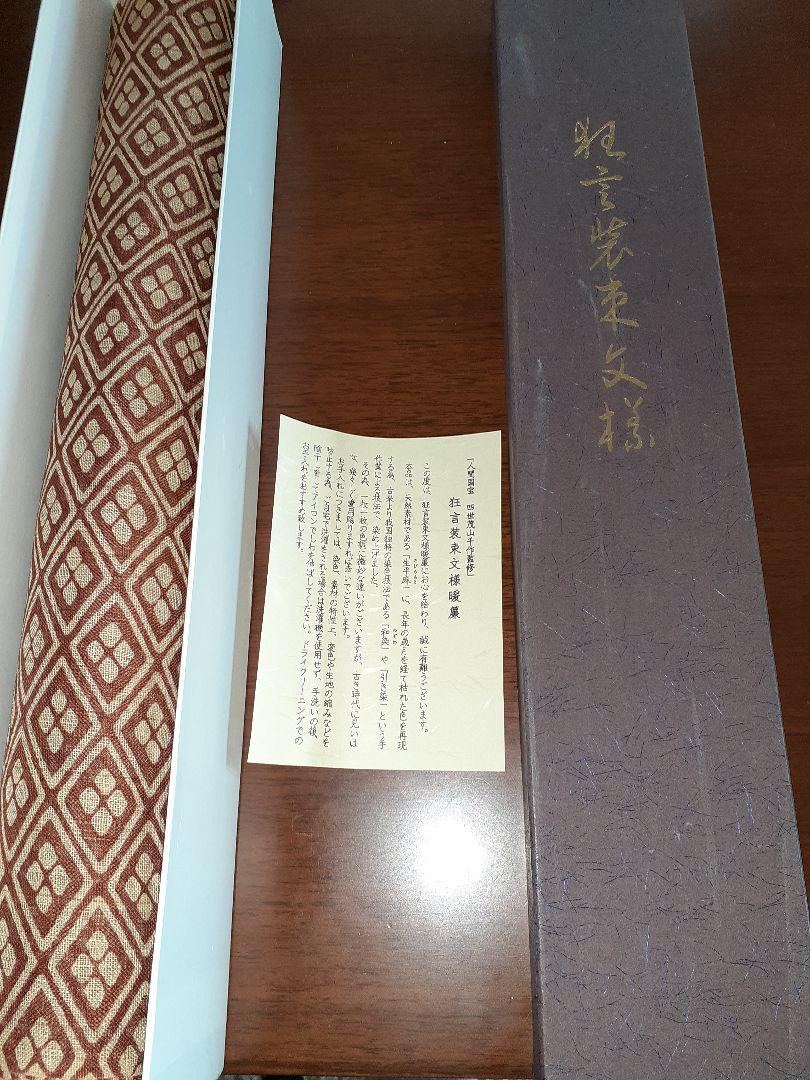 狂言装束文様
「人間国宝 四世茂山千作監修」
狂言装束文様暖簾
この度は、狂言装束文様暖簾にお心を給わり、誠に有難うございます。
本品は、天然素材である「生平麻」に、長年の歳月を経て枯れた色を再現
する為、古来より我国独特の染色技法である「和染」や「引き染」という手
代業による技法で、染め上げました。
その為、一枚一枚の色調に微妙な違いがございますが、古き時代に見いは
お手入れにつきましては、染色、素材の特性上、変色や生地の縮みなどを
防止する為、ご自宅で洗濯をされる場合は洗濯機を使用せず、手洗いの後、
陰干し、軽くアイロンでしわを伸ばしてください。ドライクリーニングでの
お手入れをおすすめ致します。